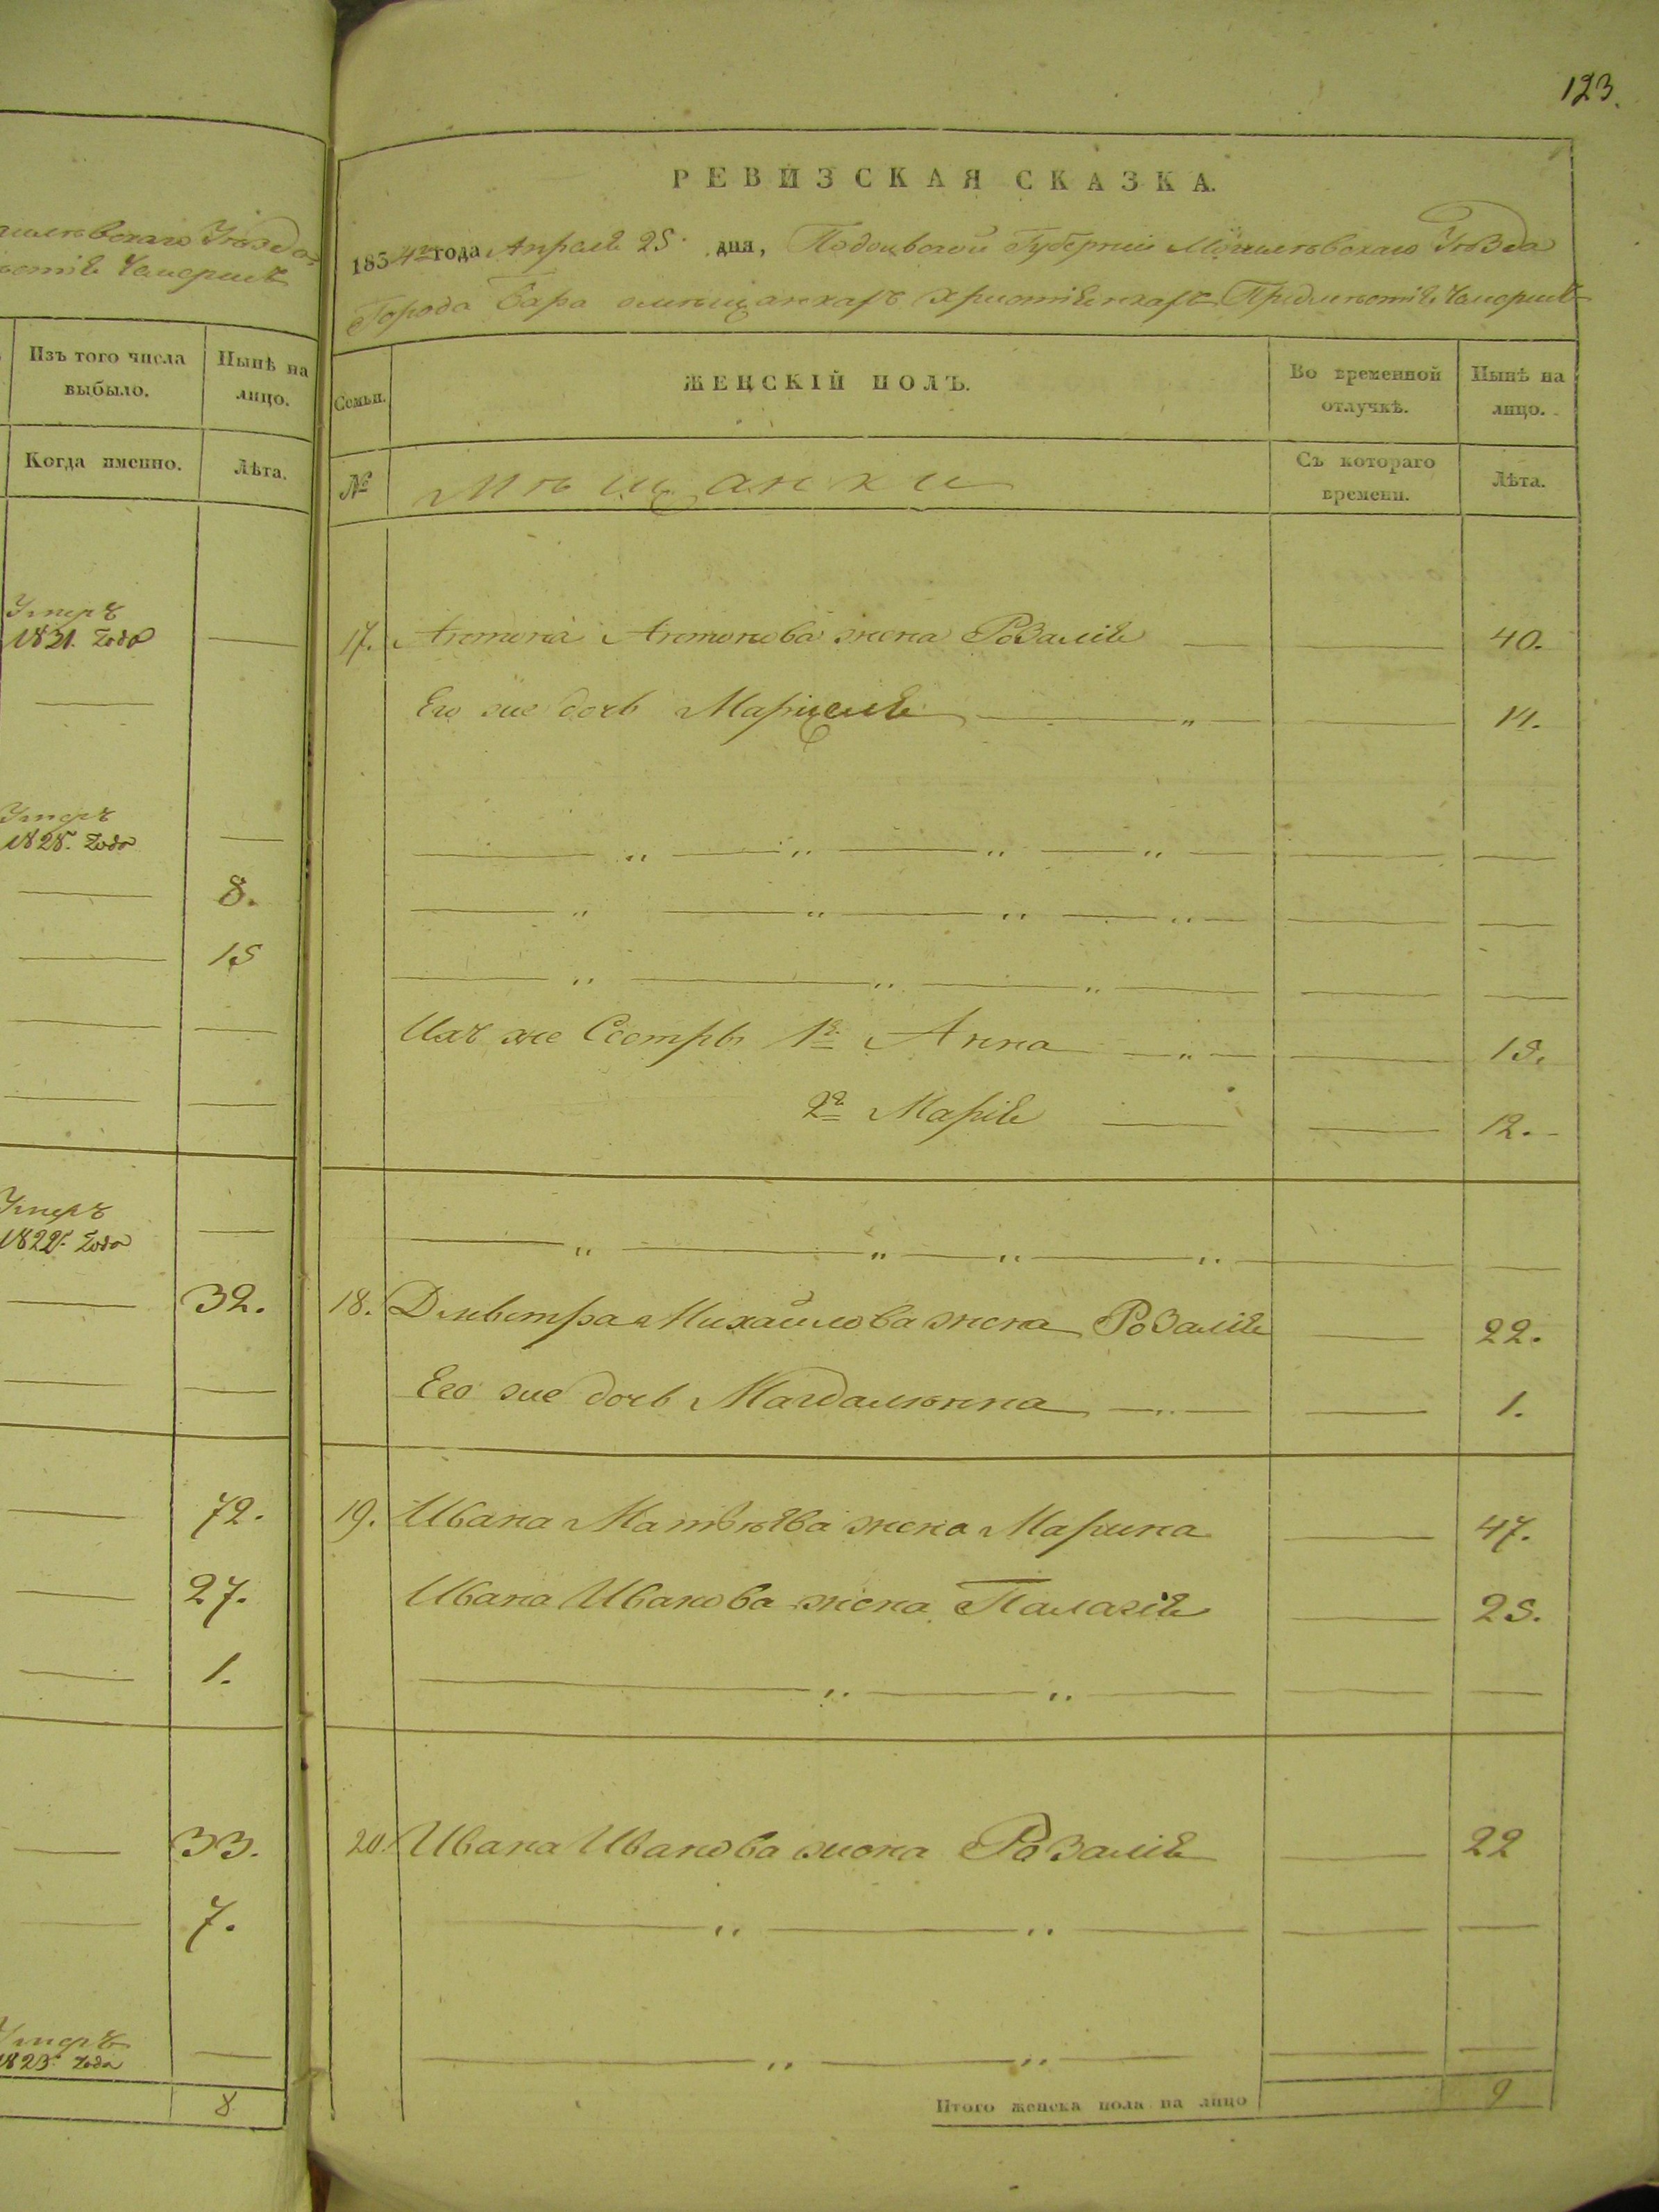 123.
РЕВИЗСКАЯ СКАЗКА.
1834го года Апреля 25 дня, Подольской Губернии Могилевскаго Уѣзда
Города Бара о мѣщанкахъ христіянкахъ Предмѣстія Чемерисъ
Семьи.
ЖЕНСКІЙ ПОЛЪ.
Во временной отлучкѣ.
Нынѣ на лицо.
№
Мѣщанки
Съ котораго времени.
Лѣта.
17. Антона Антонова жена Розалія 40.
Его же дочь Марцеля 14.
Ихъ же Сестры 1я Анна 15.
2я Марія 12.
18. Дмитра Михайлова жена Розалія 22.
Его же дочь Магдалѣнна 1.
19. Ивана Матвѣева жена Марина 47.
Ивана Иванова жена Палагія 25.
20. Ивана Иванова жена Розалія 22
Итого женска пола на лицо 9
Уѣзда
Чемерисъ
Изъ того числа выбыло.
Нынѣ на лицо.
Когда именно.
Лѣта.
Умеръ
1831. года
Умеръ
1828. года
8.
15
Умеръ
32.
72.
27.
1.
33.
7.
Умеръ
8